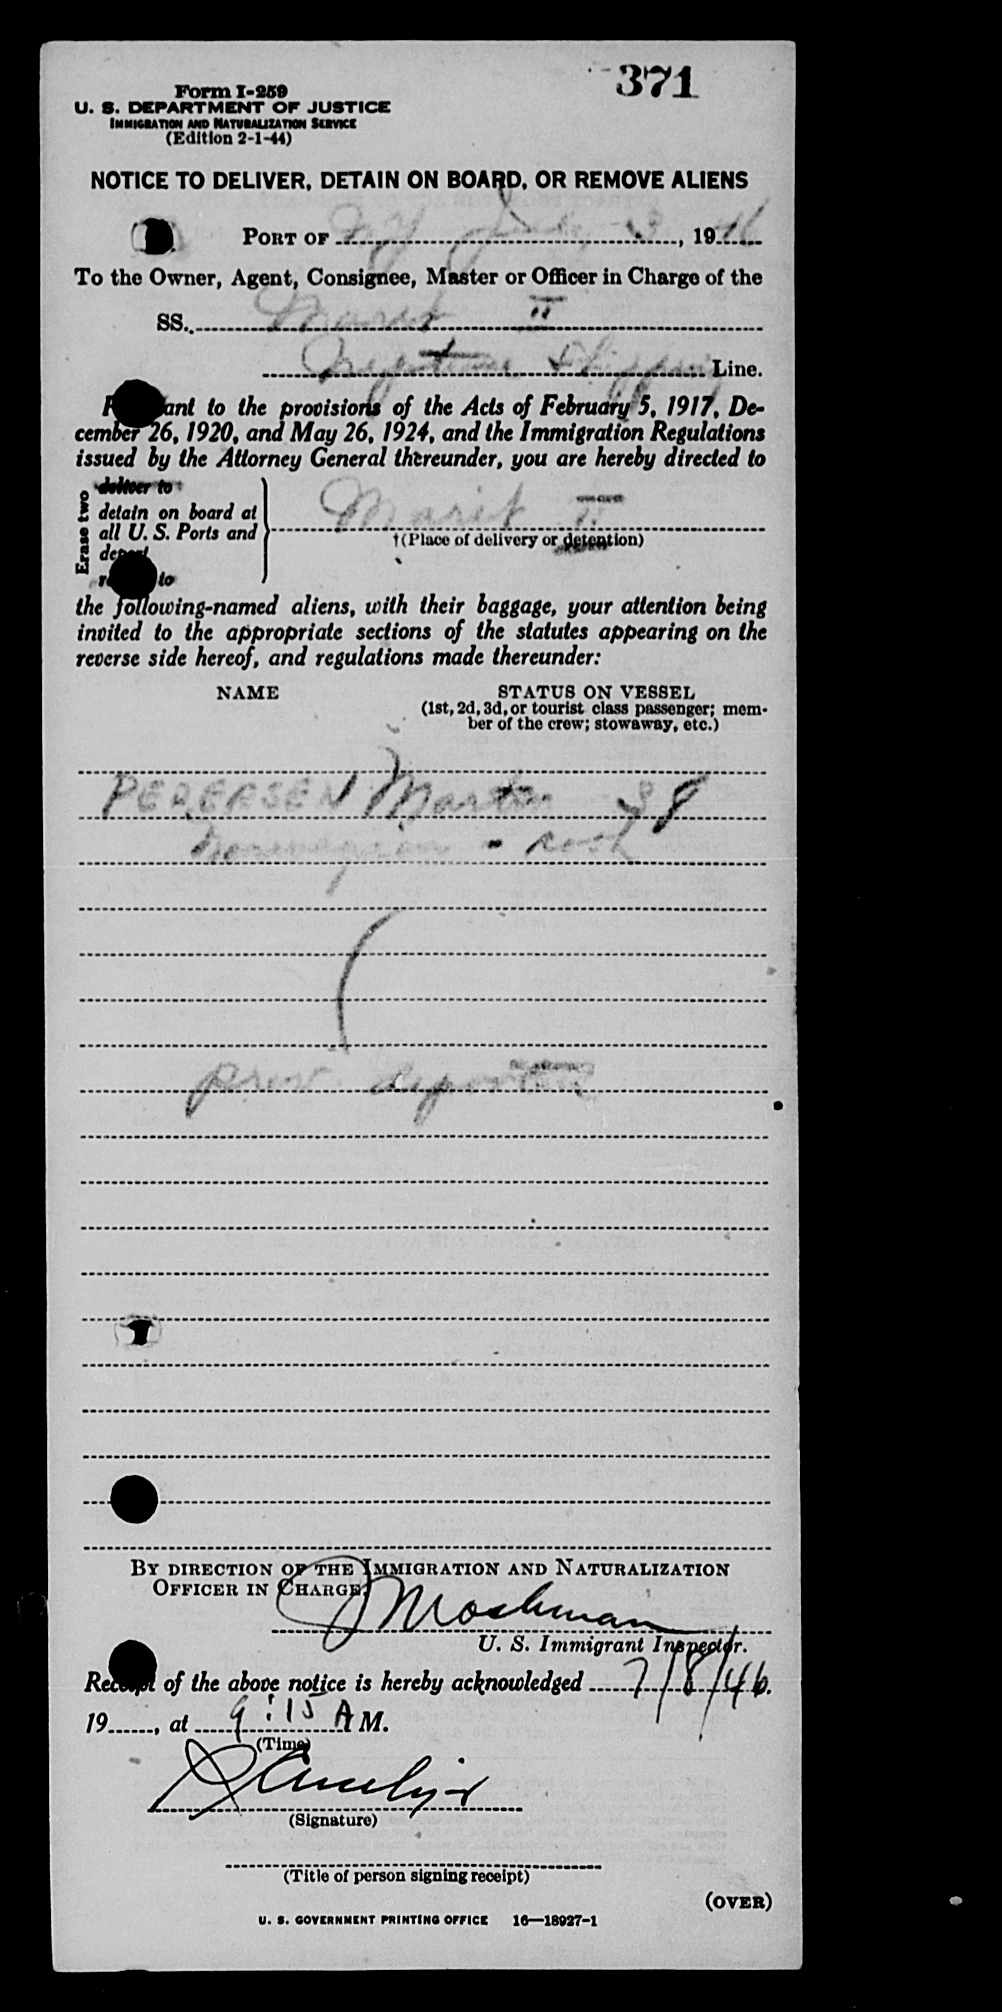 371
Form I-259
U. S. DEPARTMENT OF JUSTICE
IMMIGRATION AND NATURALIZATION SERVICE
(Edition 2-1-44)
NOTICE TO DELIVER, DETAIN ON BOARD, OR REMOVE ALIENS
PORT OF NY July 3, 1946
To the Owner, Agent, Consignee, Master or Officer in Charge of the
SS. Marit II
Neptune Shipping Line.
ant to the provisions of the Acts of February 5, 1917, De-
cember 26, 1920, and May 26, 1924, and the Immigration Regulations
issued by the Attorney General thereunder, you are hereby directed to
Erase two
deliver to
detain on board at
all U. S. Ports and
to
Marit II
†(Place of delivery or detention)
the following-named aliens, with their baggage, your attention being
invited to the appropriate sections of the statutes appearing on the
reverse side hereof, and regulations made thereunder:
NAME
STATUS ON VESSEL
(1st, 2d, 3d, or tourist class passenger; mem-
ber of the crew; stowaway, etc.)
PEDERSEN Martin 38
Norwegian -
prev. deported
BY DIRECTION OF THE IMMIGRATION AND NATURALIZATION
OFFICER IN CHARGE.
U. S. Immigrant Inspector.
Receipt of the above notice is hereby acknowledged 7/8/46.
19, at 9:15 A M.
(Time)
(Signature)
(Title of person signing receipt)
(OVER)
U. S. GOVERNMENT PRINTING OFFICE 16—18927-1